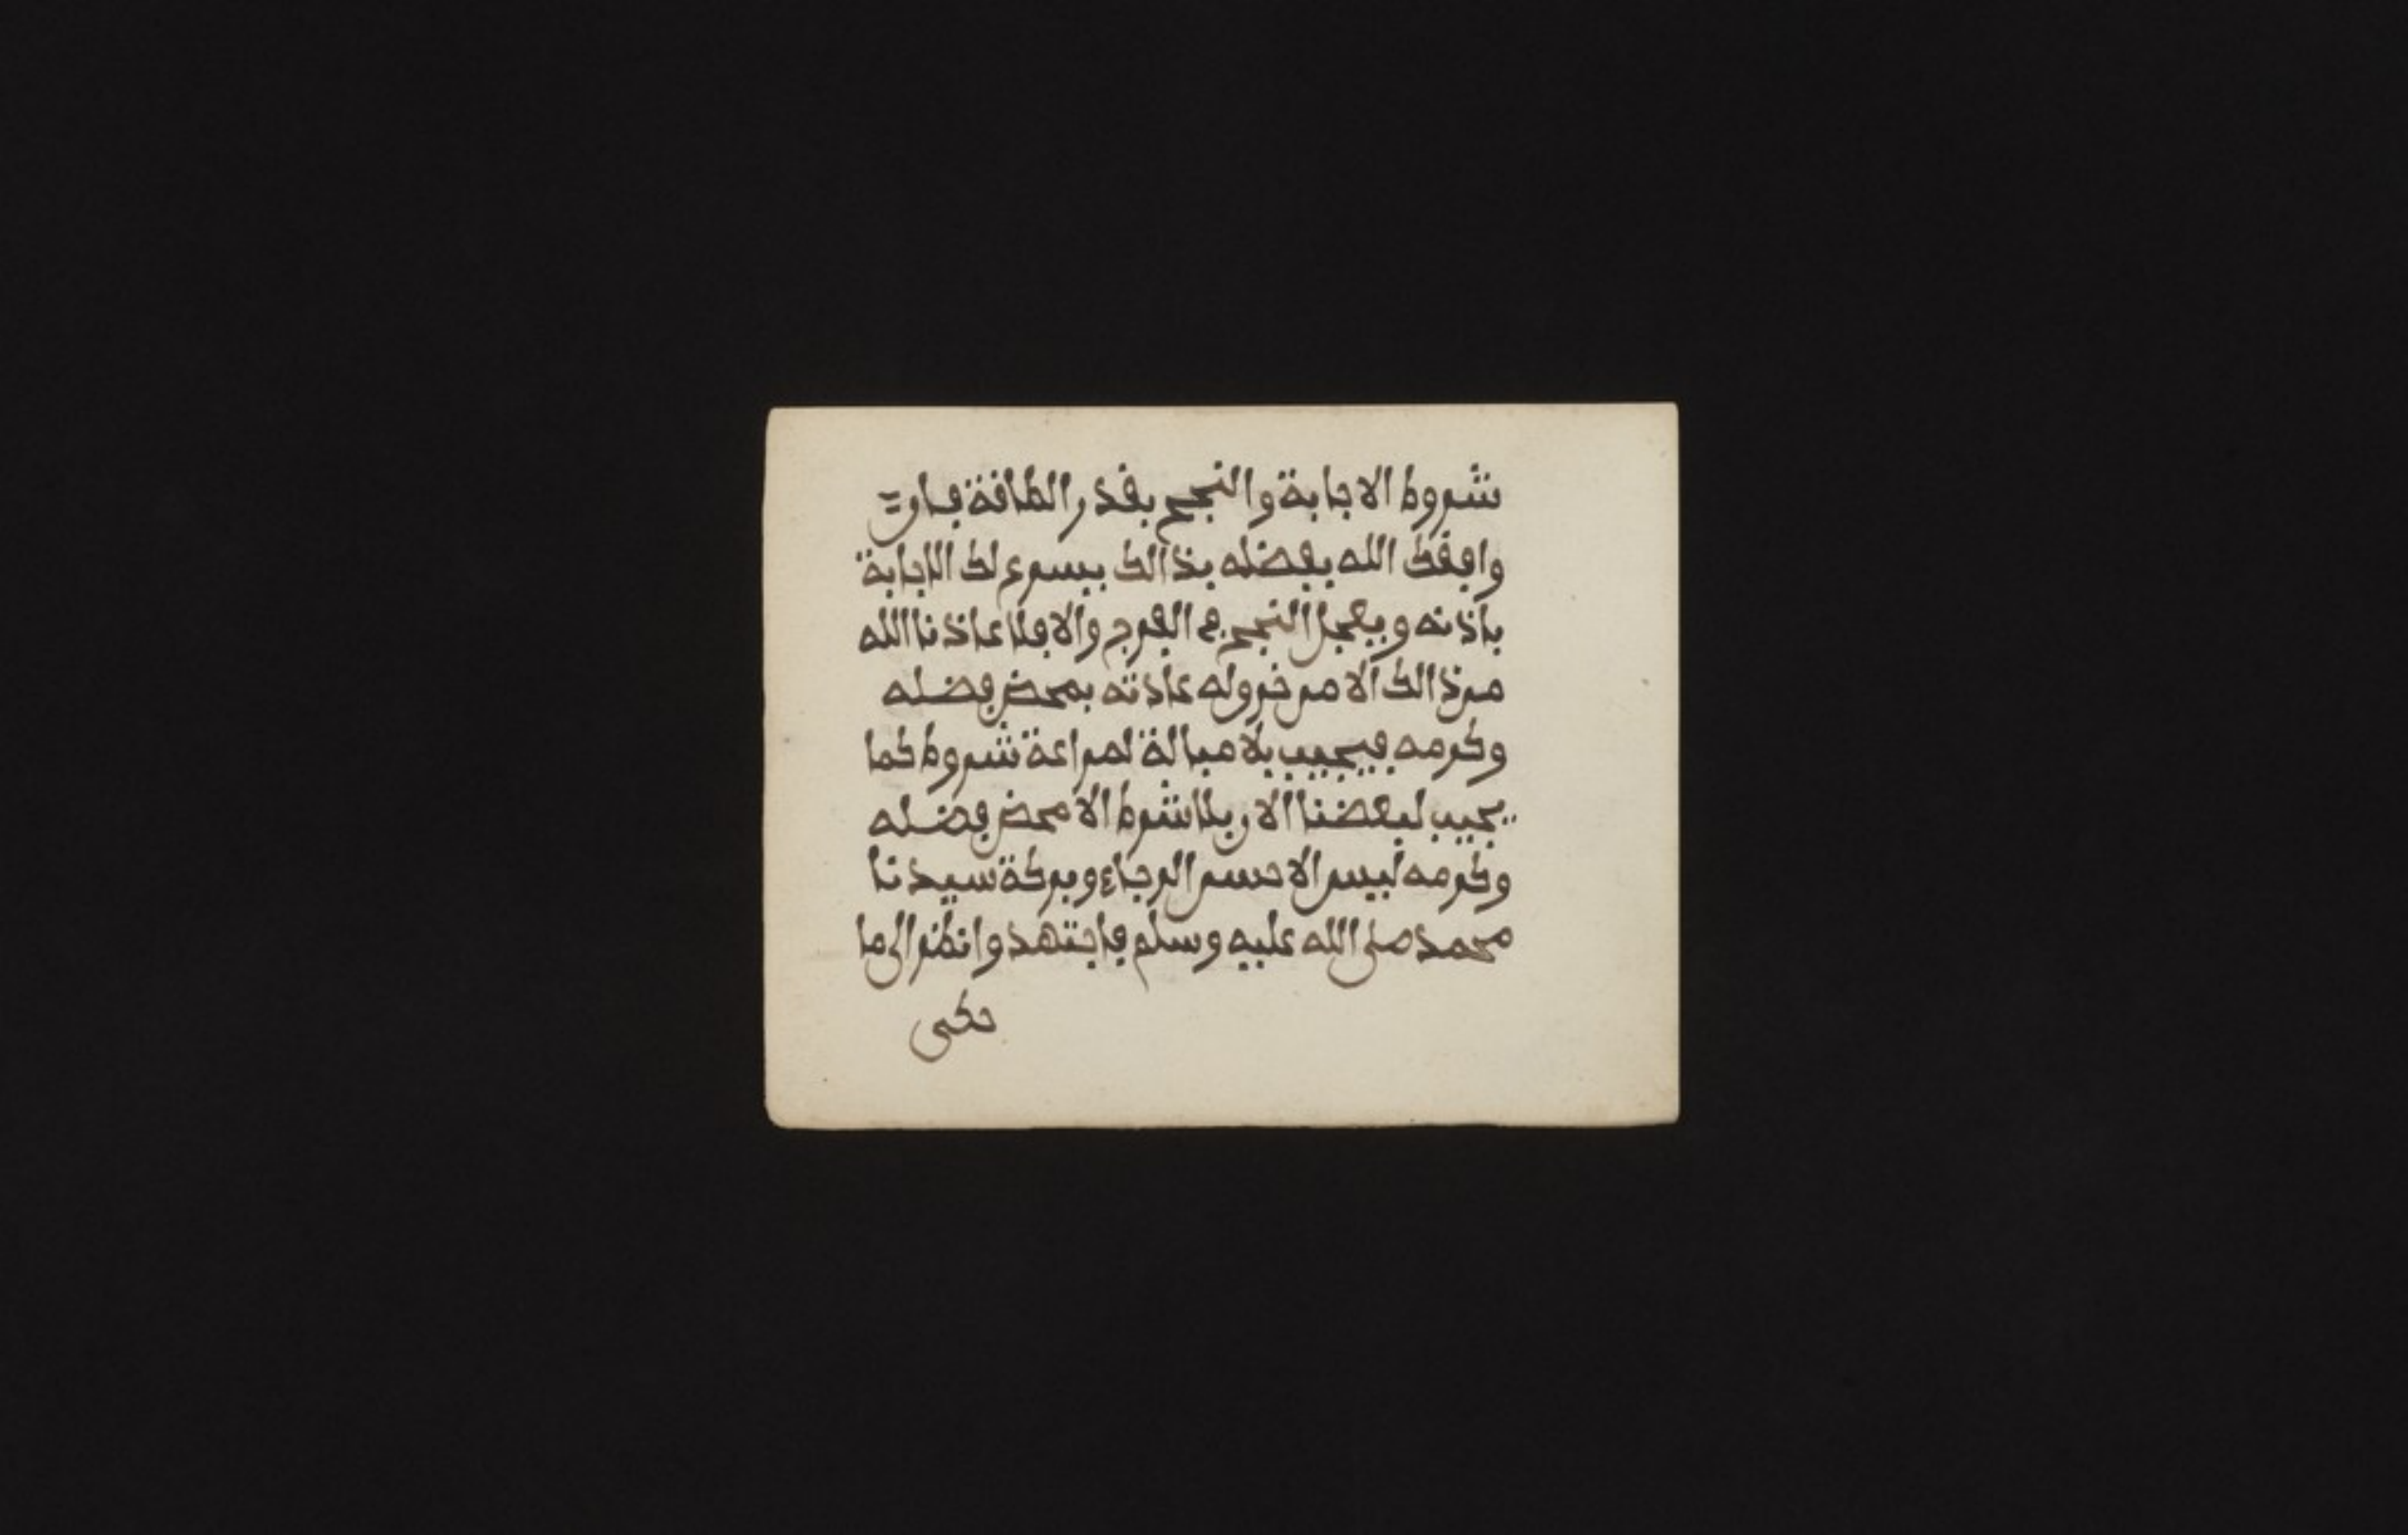 شروط الاجابة والنجح بقدر الطاقة فان
وافقك الله بفضله بذالك يسرع لك الاجابة
باذنه ويعجل النجح في الفرج والا فلا عاذنا الله
من ذالك الا من خر وله عادته بمحض فضله
وكرمه فيجيب بلا مبالة لمراعة شروط كما
يجيب لبعضنا الان بلا شرط الا محض فضله
وكرمه ليس الا حسن الرجاء وبركة سيدنا
محمد صلى الله عليه وسلم فاجتهد وانظر الى ما
حكى